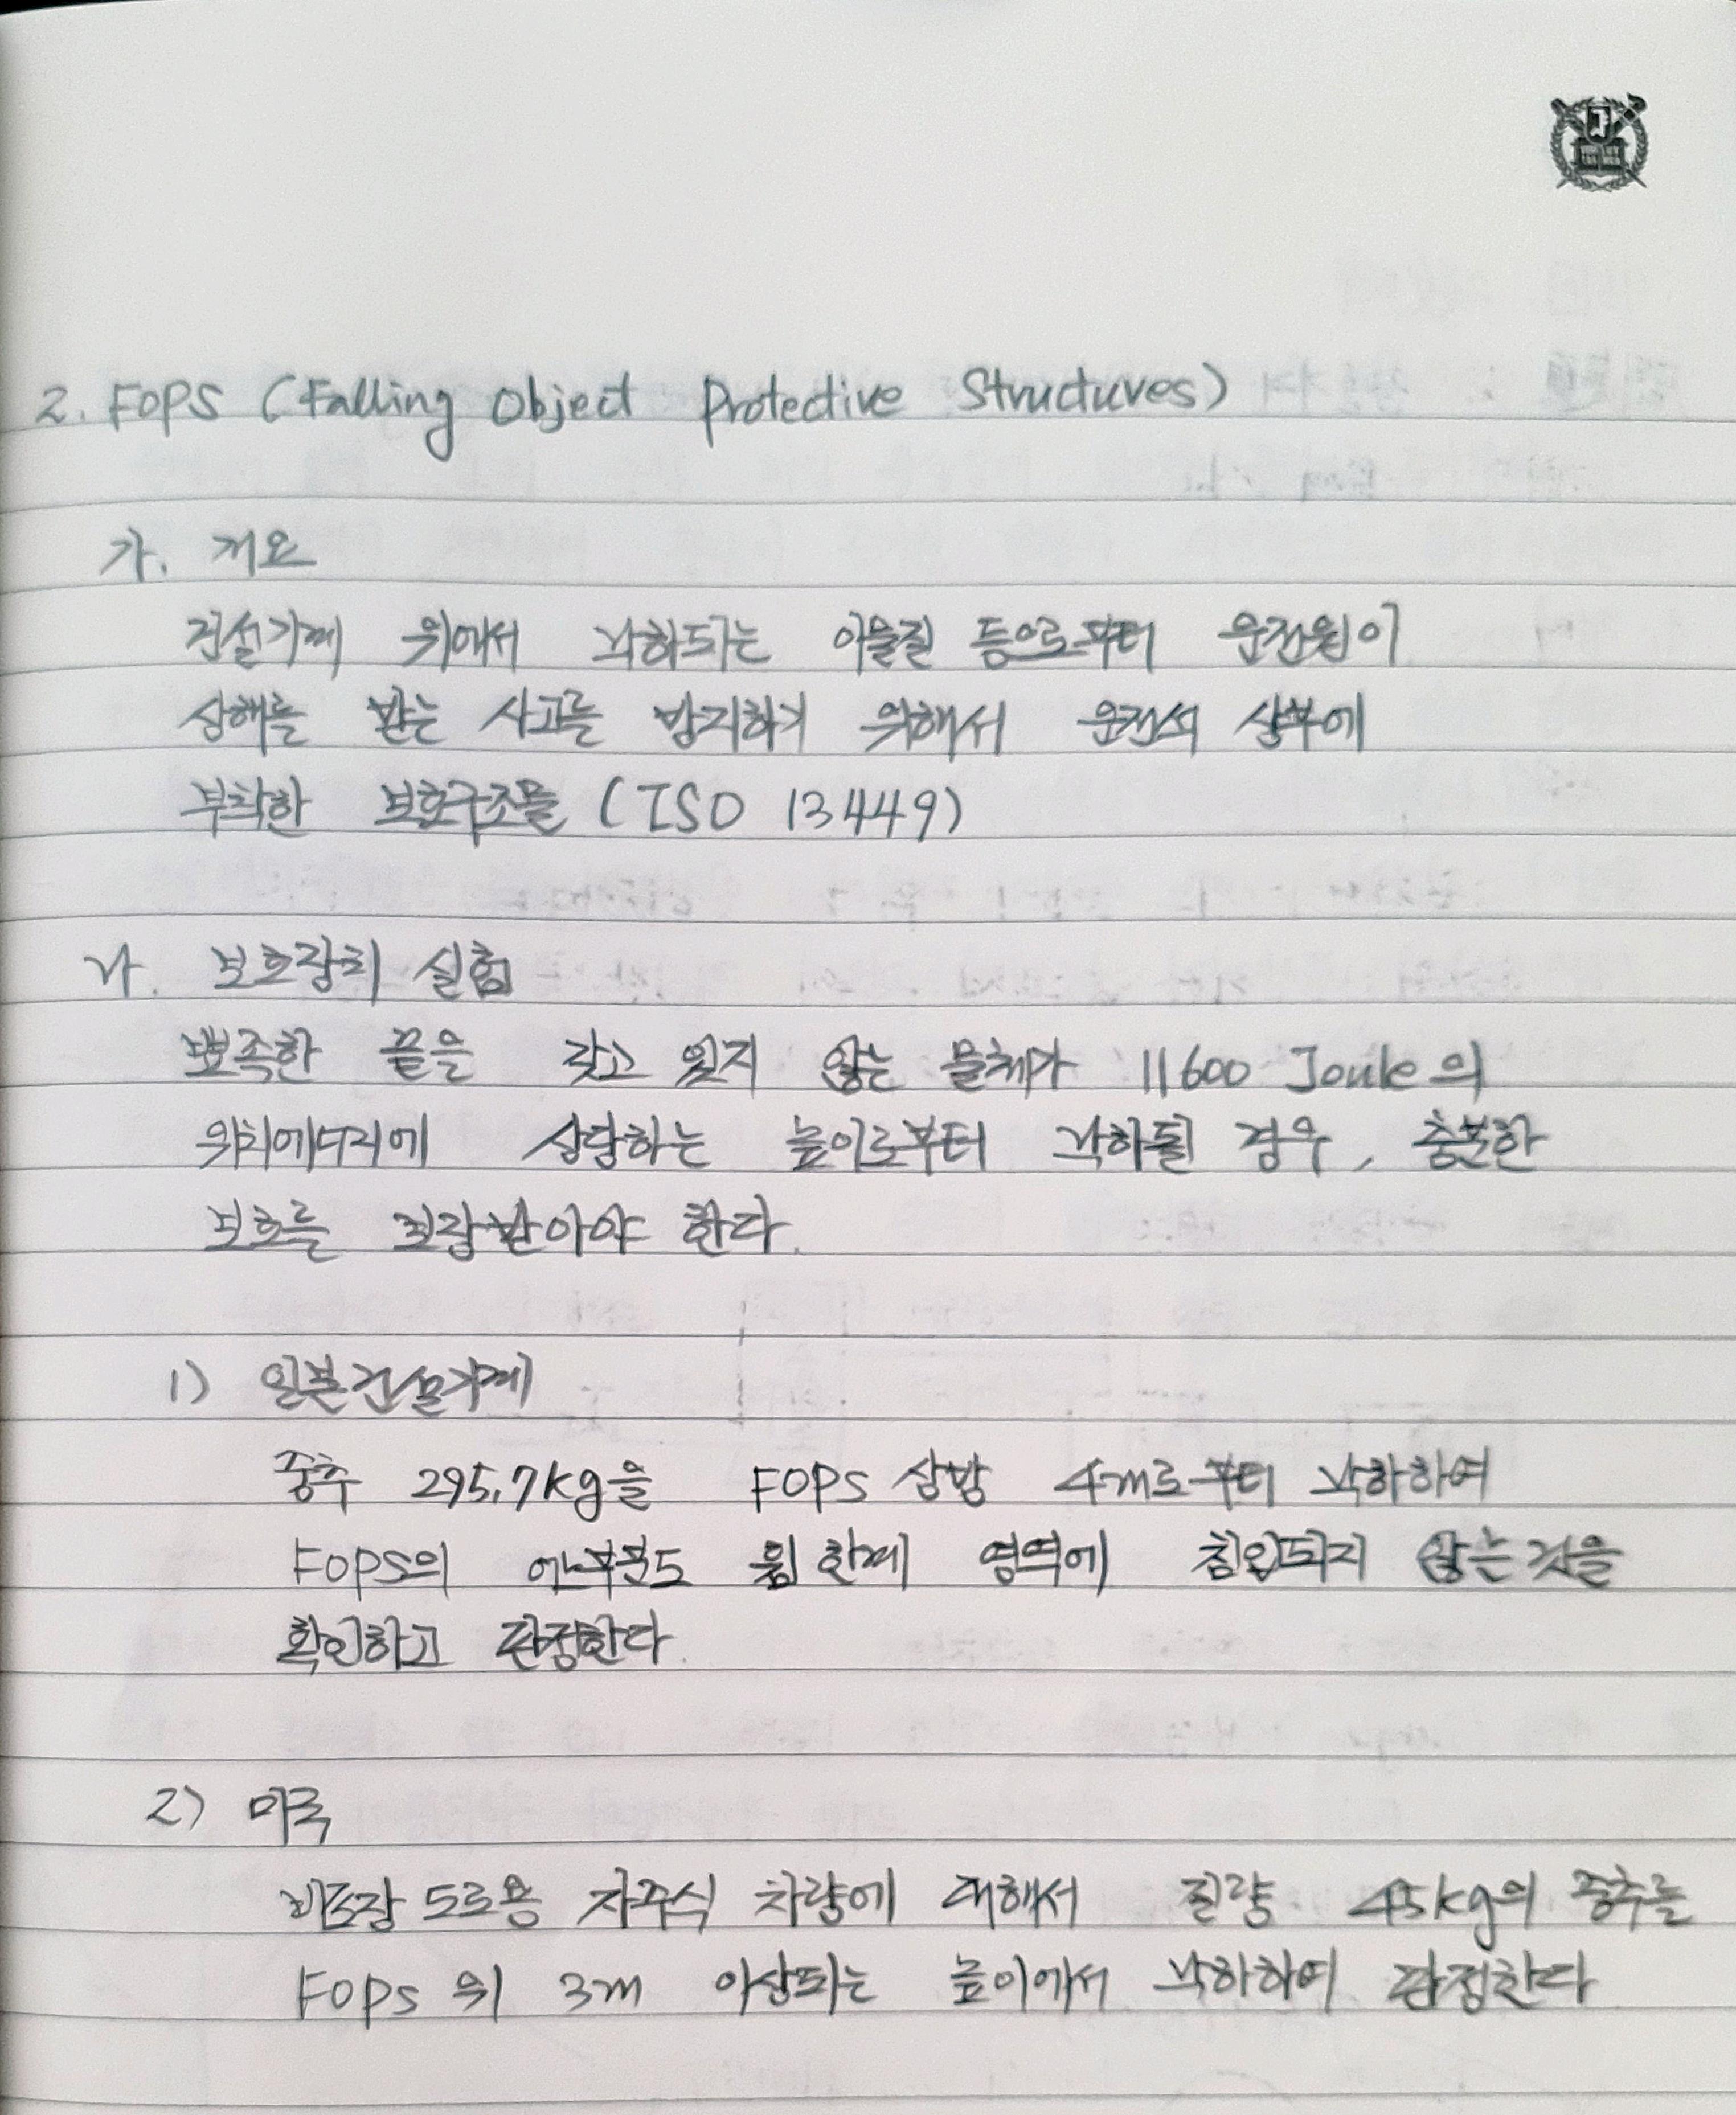 2. FOPS (Falling Object Protective Structures)
가. 개요
건설기계 위에서 낙하되는 이물질 등으로부터 운전원이
상해를 받는 사고를 방지하기 위해서 운전석 상부에
부착한 보호구조물 (ISO 13449)
나. 보호장치 실험
뾰족한 끝을 갖고 있지 않는 물체가 11600 Joule의
위치에너지에 상당하는 높이로부터 낙하될 경우, 충분한
보호를 보장받아야 한다.
1) 일본건설기계
중추 295.7kg을 FOPS 상방 4m로부터 낙하하여
FOPS의 어느부분도 휨한계 영역에 침입되지 않는것을
확인하고 판정한다.
2) 미국
비포장 도로용 자주식 차량에 대해서 질량 45kg의 중추를
FOPS 위 3m 이상되는 높이에서 낙하하여 판정한다